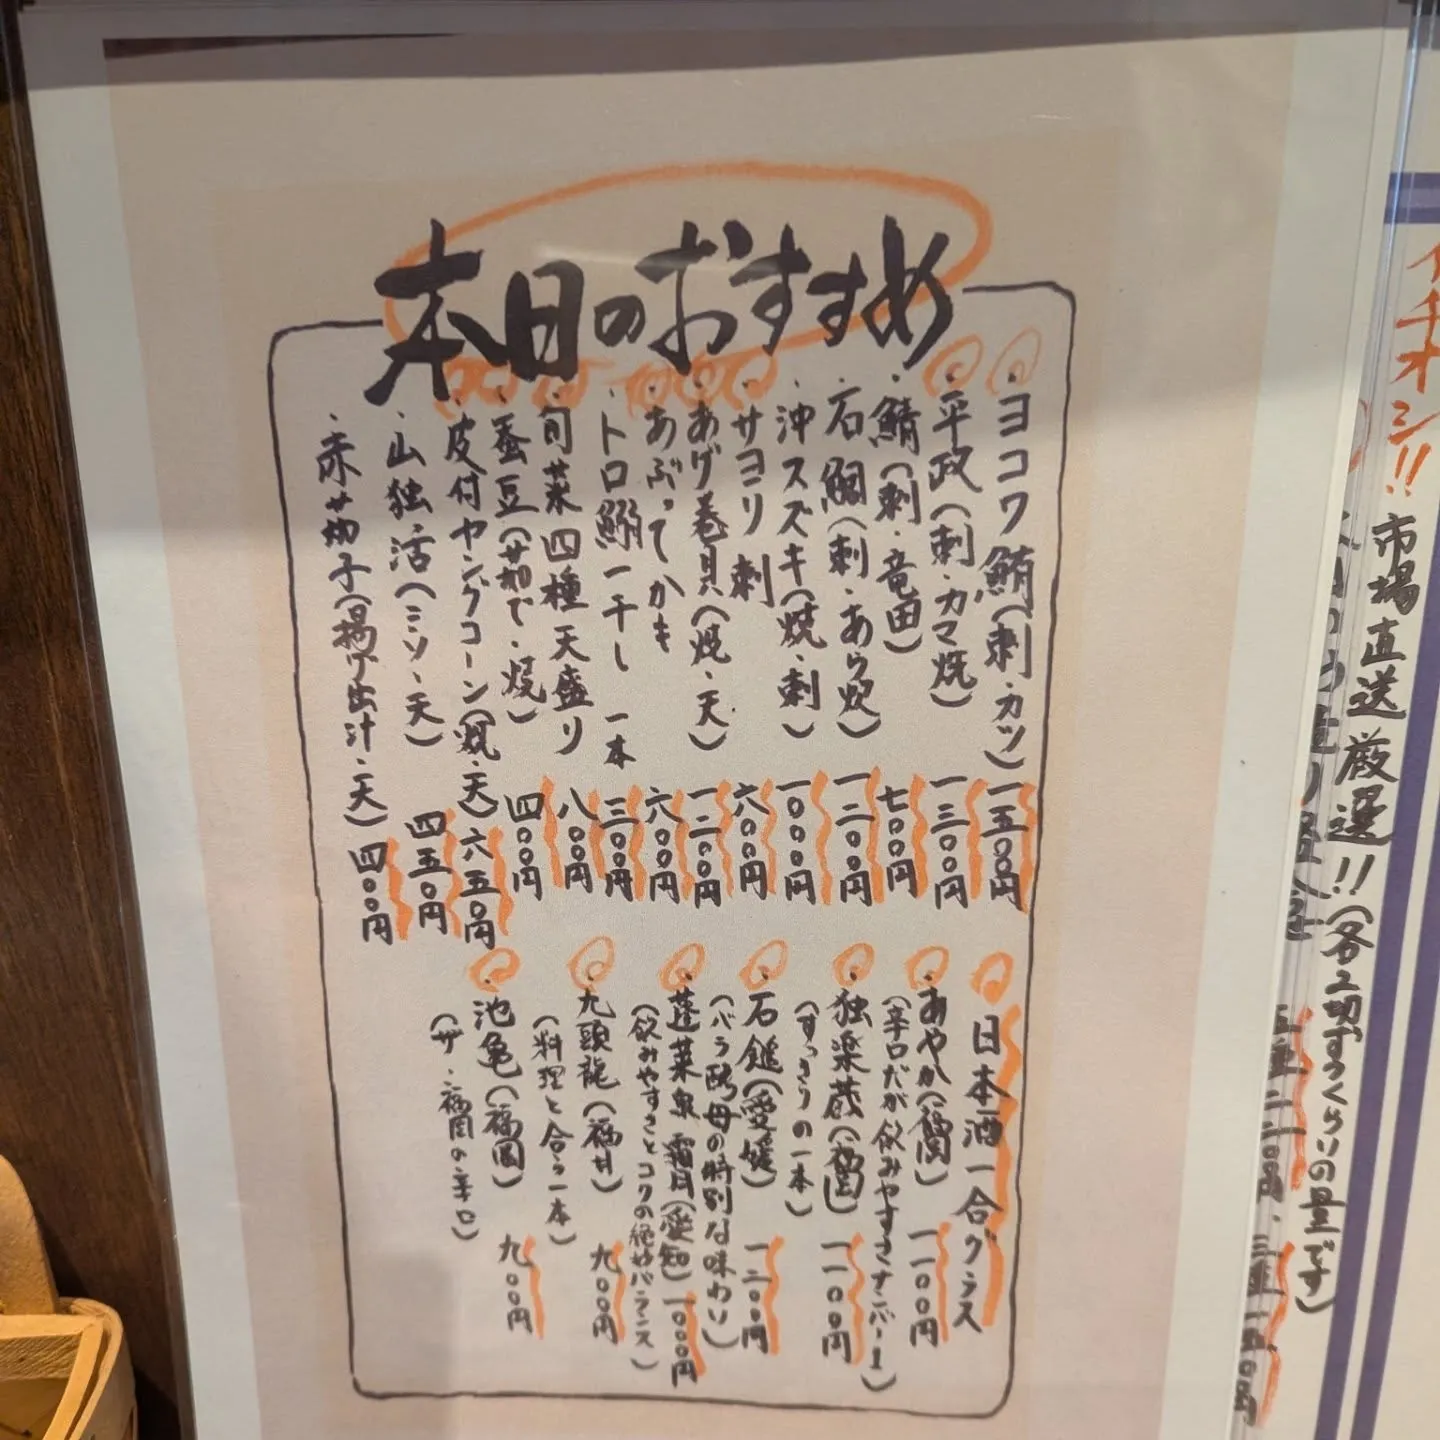 本日のおすすめ
・ヨコワ鮪(刺・カツ)一五〇〇円
・平政(刺・カマ焼)一三〇〇円
・鯖(刺・竜田)七〇〇円
・石鯛(刺・あら炊)一二〇〇円
・沖スズキ(焼・刺)一〇〇〇円
・サヨリ刺 六〇〇円
・あげ巻貝(焼・天)一二〇〇円
・あぶってかも 六〇〇円
・トロ鰯一干し 一本 三〇〇円
・旬菜四種天盛り 八〇〇円
・蚕豆(ゆで・焼)四〇〇円
・皮付ヤングコーン(焼・天)六五〇円
・山独活(ミソ・天)四五〇円
・赤茄子(揚げ出汁・天)四〇〇円
日本酒一合グラス
・あやか(福岡)一一〇〇円
(辛口だが飲みやすさナンバー1)
・独楽蔵(福岡)一一〇〇円
(すっきりの一本)
・石鎚(愛媛)一三〇〇円
(バラ酵母の特別な味わい)
・蓬莱泉 霜月(愛知)一〇〇〇円
(飲みやすさとコクの絶妙バランス)
・九頭龍(福井)九〇〇円
(料理と合う一本)
・池亀(福岡)九〇〇円
(ザ・福岡の辛口)
イチオシ!!
市場直送厳選!!(各2切ずつくらいの量です)